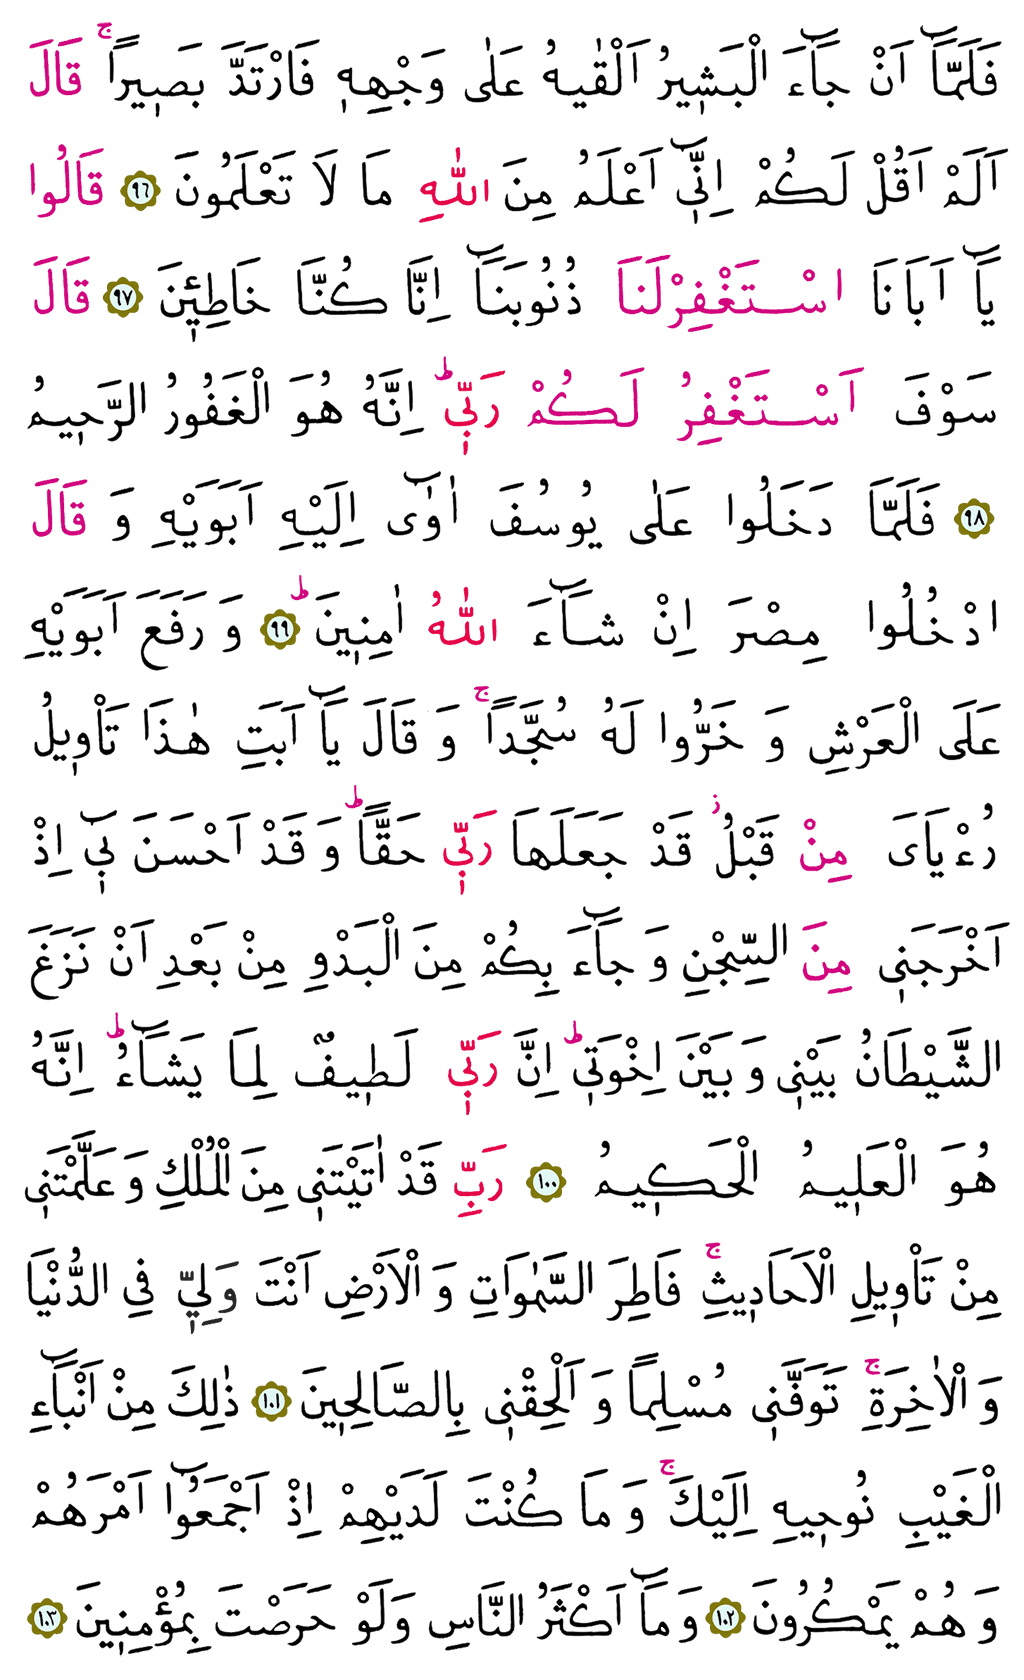 فَلَمَّٓا اَنْ جَٓاءَ الْبَشٖيرُ اَلْقٰيهُ عَلٰى وَجْهِهٖ فَارْتَدَّ بَصٖيرًاۚ قَالَ
اَلَمْ اَقُلْ لَكُمْ اِنّٖٓى اَعْلَمُ مِنَ اللّٰهِ مَا لَا تَعْلَمُونَ ﴿٩٦﴾ قَالُوا
يَٓا اَبَانَا اسْتَغْفِرْلَنَا ذُنُوبَنَٓا اِنَّا كُنَّا خَاطِئٖينَ ﴿٩٧﴾ قَالَ
سَوْفَ اَسْتَغْفِرُ لَكُمْ رَبّٖىؕ اِنَّهُ هُوَ الْغَفُورُ الرَّحٖيمُ
﴿٩٨﴾ فَلَمَّا دَخَلُوا عَلٰى يُوسُفَ اٰوٰٓى اِلَيْهِ اَبَوَيْهِ وَ قَالَ
ادْخُلُوا مِصْرَ اِنْ شَٓاءَ اللّٰهُ اٰمِنٖينَؕ ﴿٩٩﴾ وَ رَفَعَ اَبَوَيْهِ
عَلَى الْعَرْشِ وَ خَرُّوا لَهُ سُجَّدًاۚ وَ قَالَ يَٓا اَبَتِ هٰذَا تَاْوٖيلُ
رُءْيَاىَ مِنْ قَبْلُؗ قَدْ جَعَلَهَا رَبّٖى حَقًّاؕ وَ قَدْ اَحْسَنَ بٖٓى اِذْ
اَخْرَجَنٖى مِنَ السِّجْنِ وَ جَٓاءَ بِكُمْ مِنَ الْبَدْوِ مِنْ بَعْدِ اَنْ نَزَغَ
الشَّيْطَانُ بَيْنٖى وَ بَيْنَ اِخْوَتٖىؕ اِنَّ رَبّٖى لَطٖيفٌ لِمَا يَشَٓاءُؕ اِنَّهُ
هُوَ الْعَلٖيمُ الْحَكٖيمُ ﴿١٠٠﴾ رَبِّ قَدْ اٰتَيْتَنٖى مِنَ الْمُلْكِ وَ عَلَّمْتَنٖى
مِنْ تَاْوٖيلِ الْاَحَادٖيثِۚ فَاطِرَ السَّمٰوَاتِ وَ الْاَرْضِ اَنْتَ وَلِيّٖ فِى الدُّنْيَا
وَ الْاٰخِرَةِۚ تَوَفَّنٖى مُسْلِمًا وَ اَلْحِقْنٖى بِالصَّالِحٖينَ ﴿١٠١﴾ ذٰلِكَ مِنْ اَنْبَٓاءِ
الْغَيْبِ نُوحٖيهِ اِلَيْكَۚ وَ مَا كُنْتَ لَدَيْهِمْ اِذْ اَجْمَعُٓوا اَمْرَهُمْ
وَ هُمْ يَمْكُرُونَ ﴿١٠٢﴾ وَ مَٓا اَكْثَرُ النَّاسِ وَلَوْ حَرَصْتَ بِمُؤْمِنٖينَ ﴿١٠٣﴾